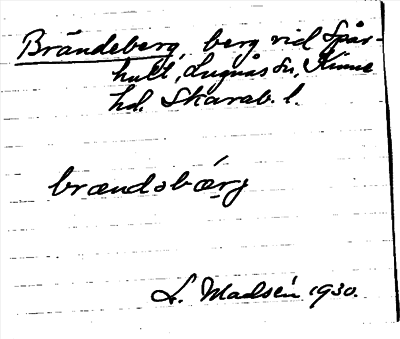 Brändeberg, berg vid Spår-
hult, Lugnås sn, Kinne
hd. Skarab. l.
brændəbærg
L. Madsén 1930.